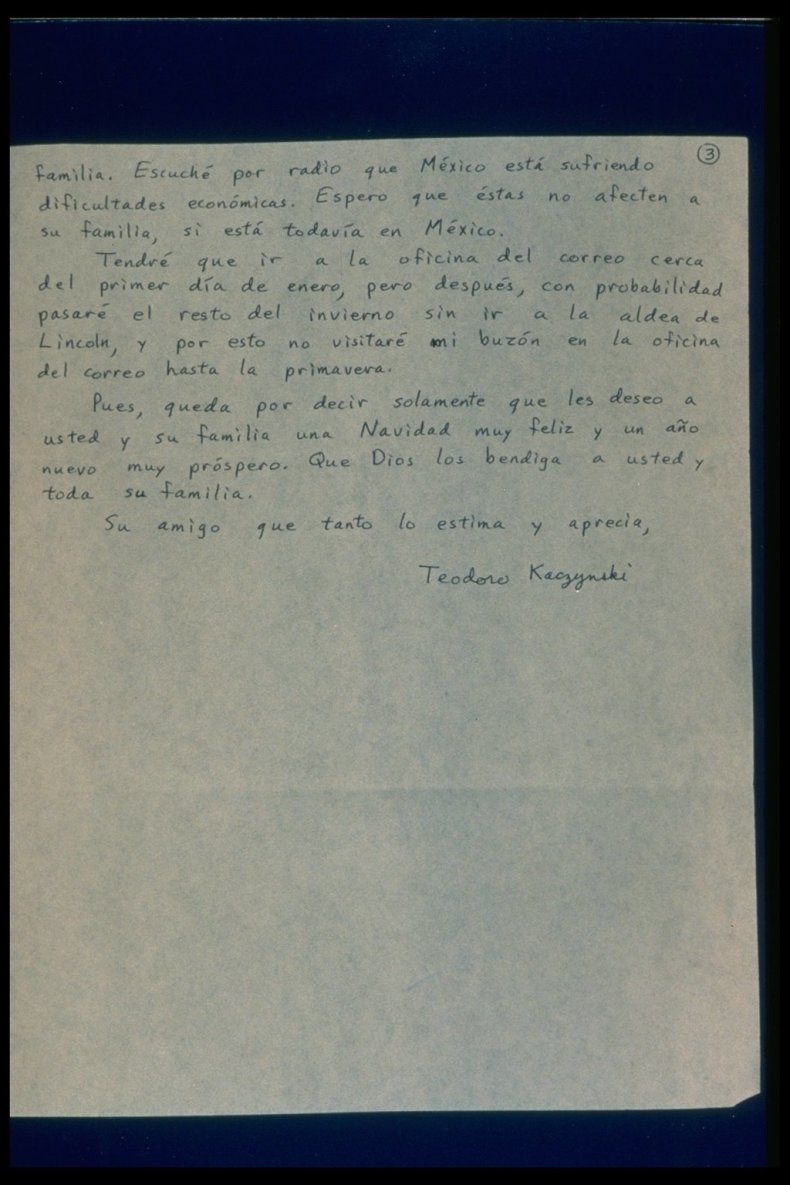 ③
familia. Escuché por radio que México está sufriendo
dificultades económicas. Espero que éstas no afecten a
su familia, si está todavía en México.
Tendré que ir a la oficina del correo cerca
del primer día de enero, pero después, con probabilidad
pasaré el resto del invierno sin ir a la aldea de
Lincoln, y por esto no visitaré mi buzón en la oficina
del correo hasta la primavera.
Pues, queda por decir solamente que les deseo a
usted y su familia una Navidad muy feliz y un año
nuevo muy próspero. Que Dios los bendiga a usted y
toda su familia.
Su amigo que tanto lo estima y aprecia,
Teodoro Kaczynski